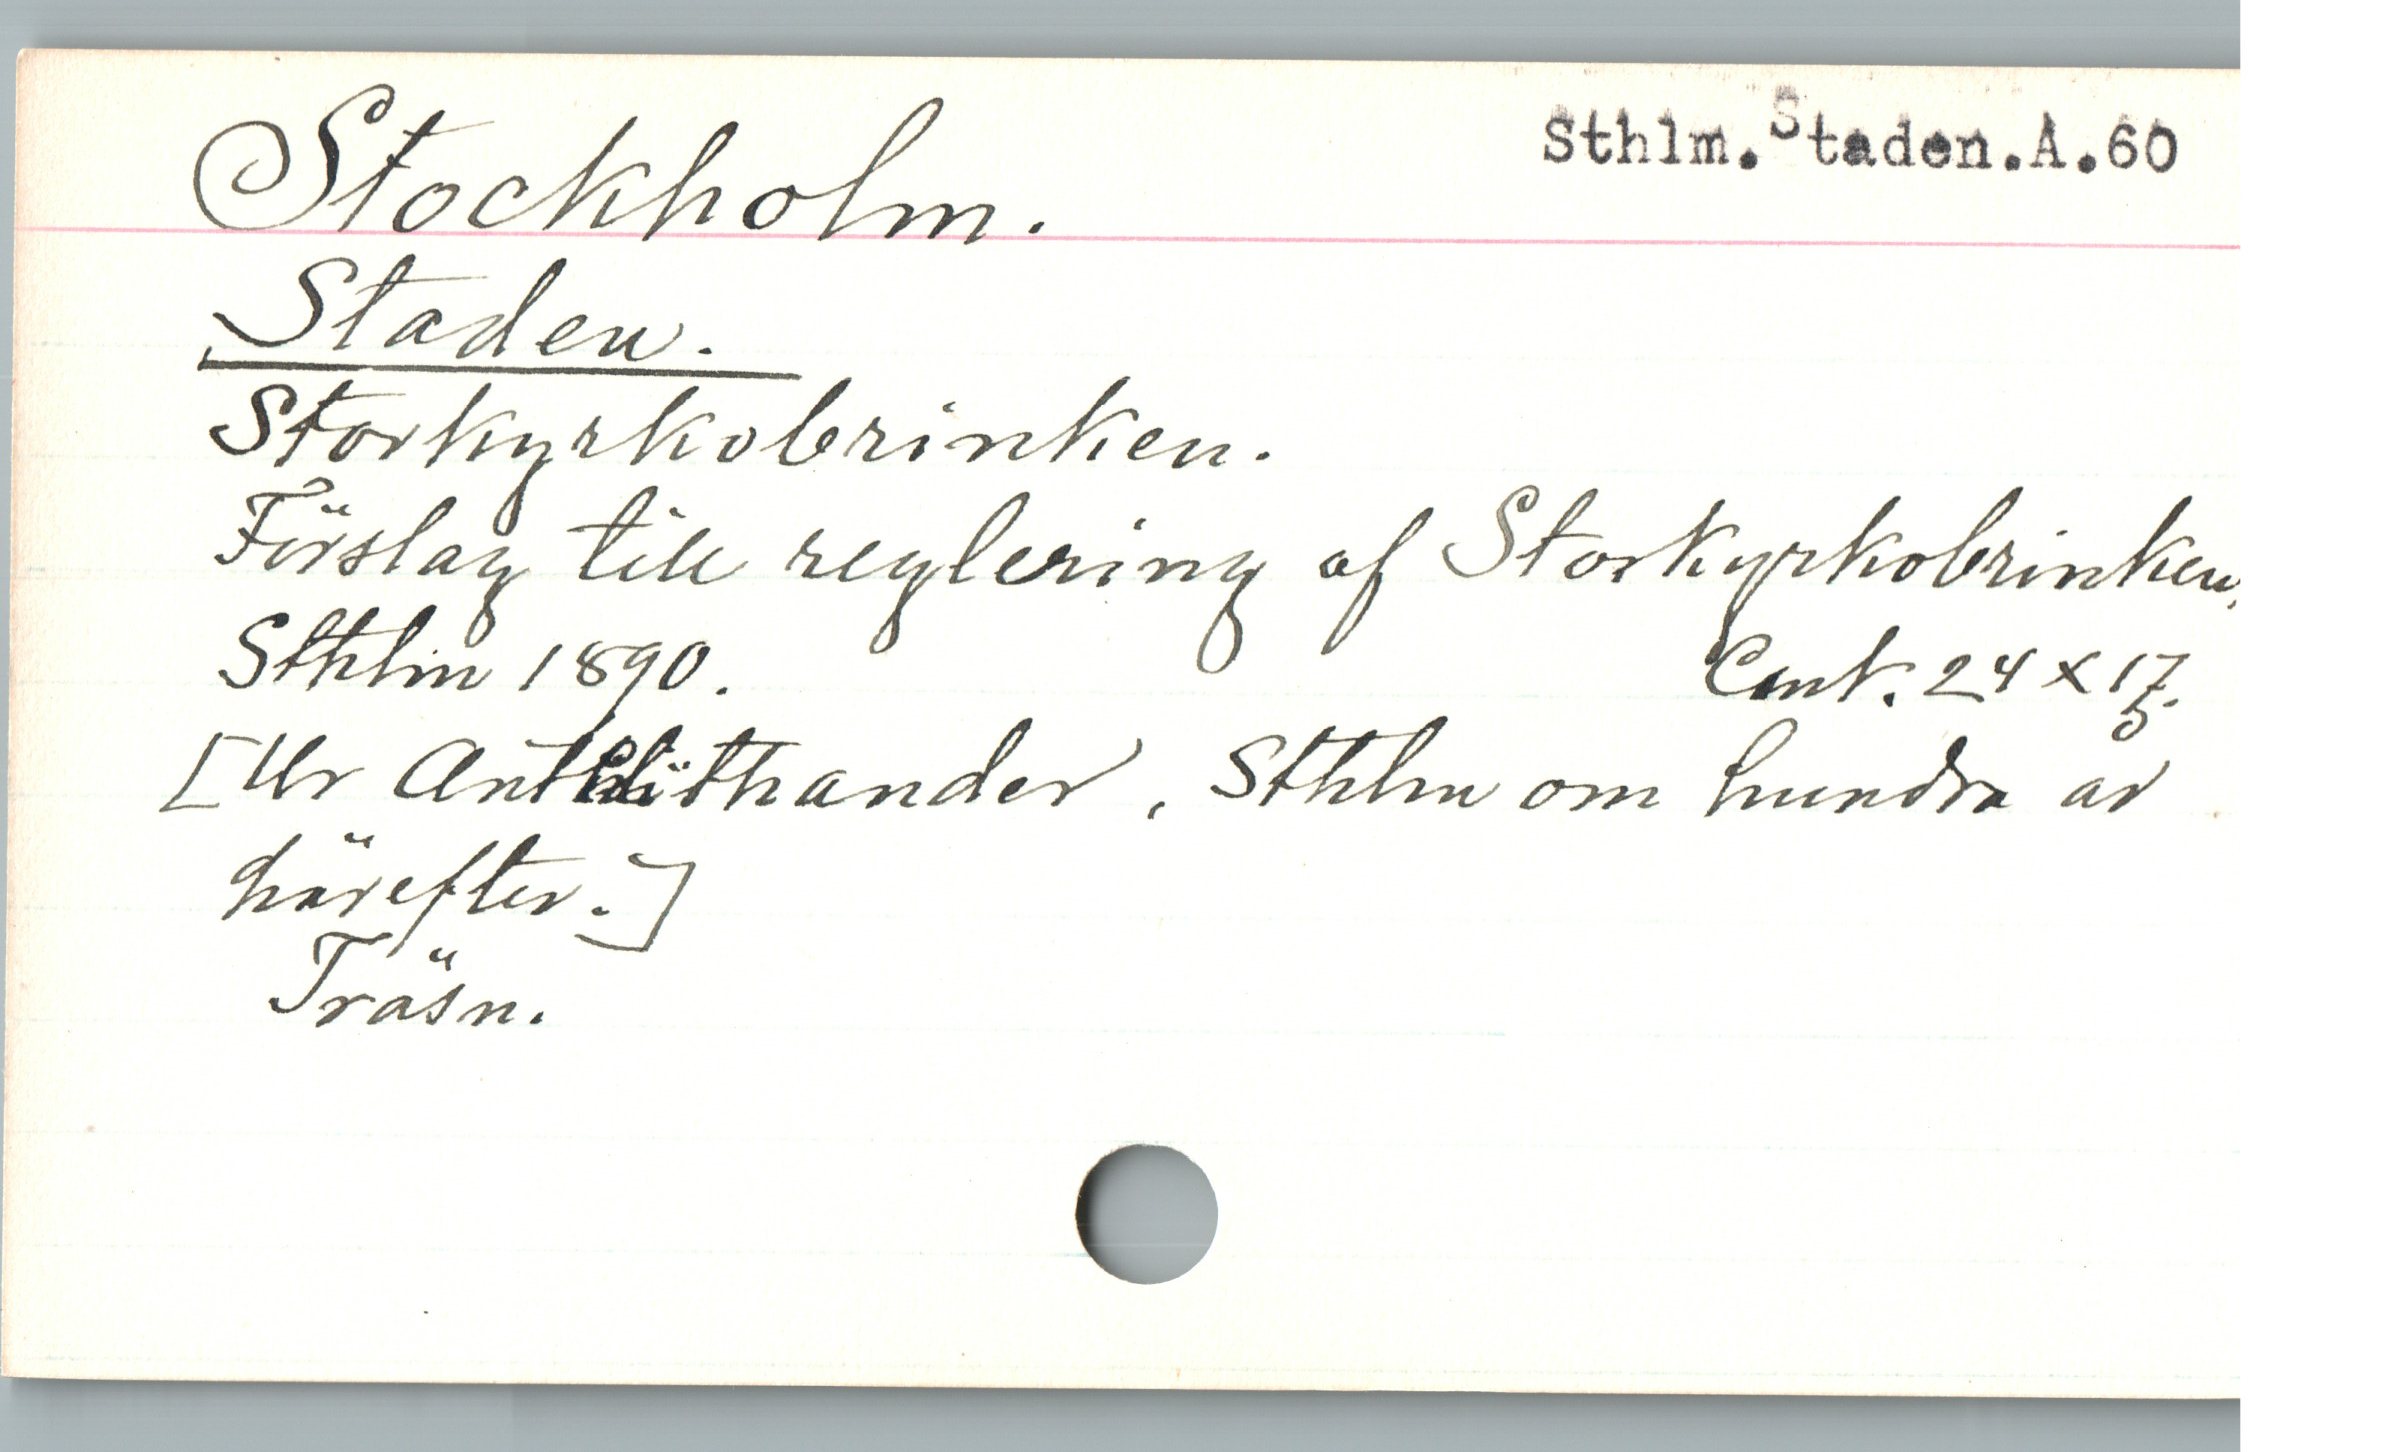 Sthlm.Staden.A.60
Stockholm.
Staden.
Storkyrkobrinken.
Förslag till reglering af Storkyrkobrinken,
Sthlm 1890. Cent. 24 x 17.
[Ur , Sthlm om hundra år
härefter.]
Träsn.